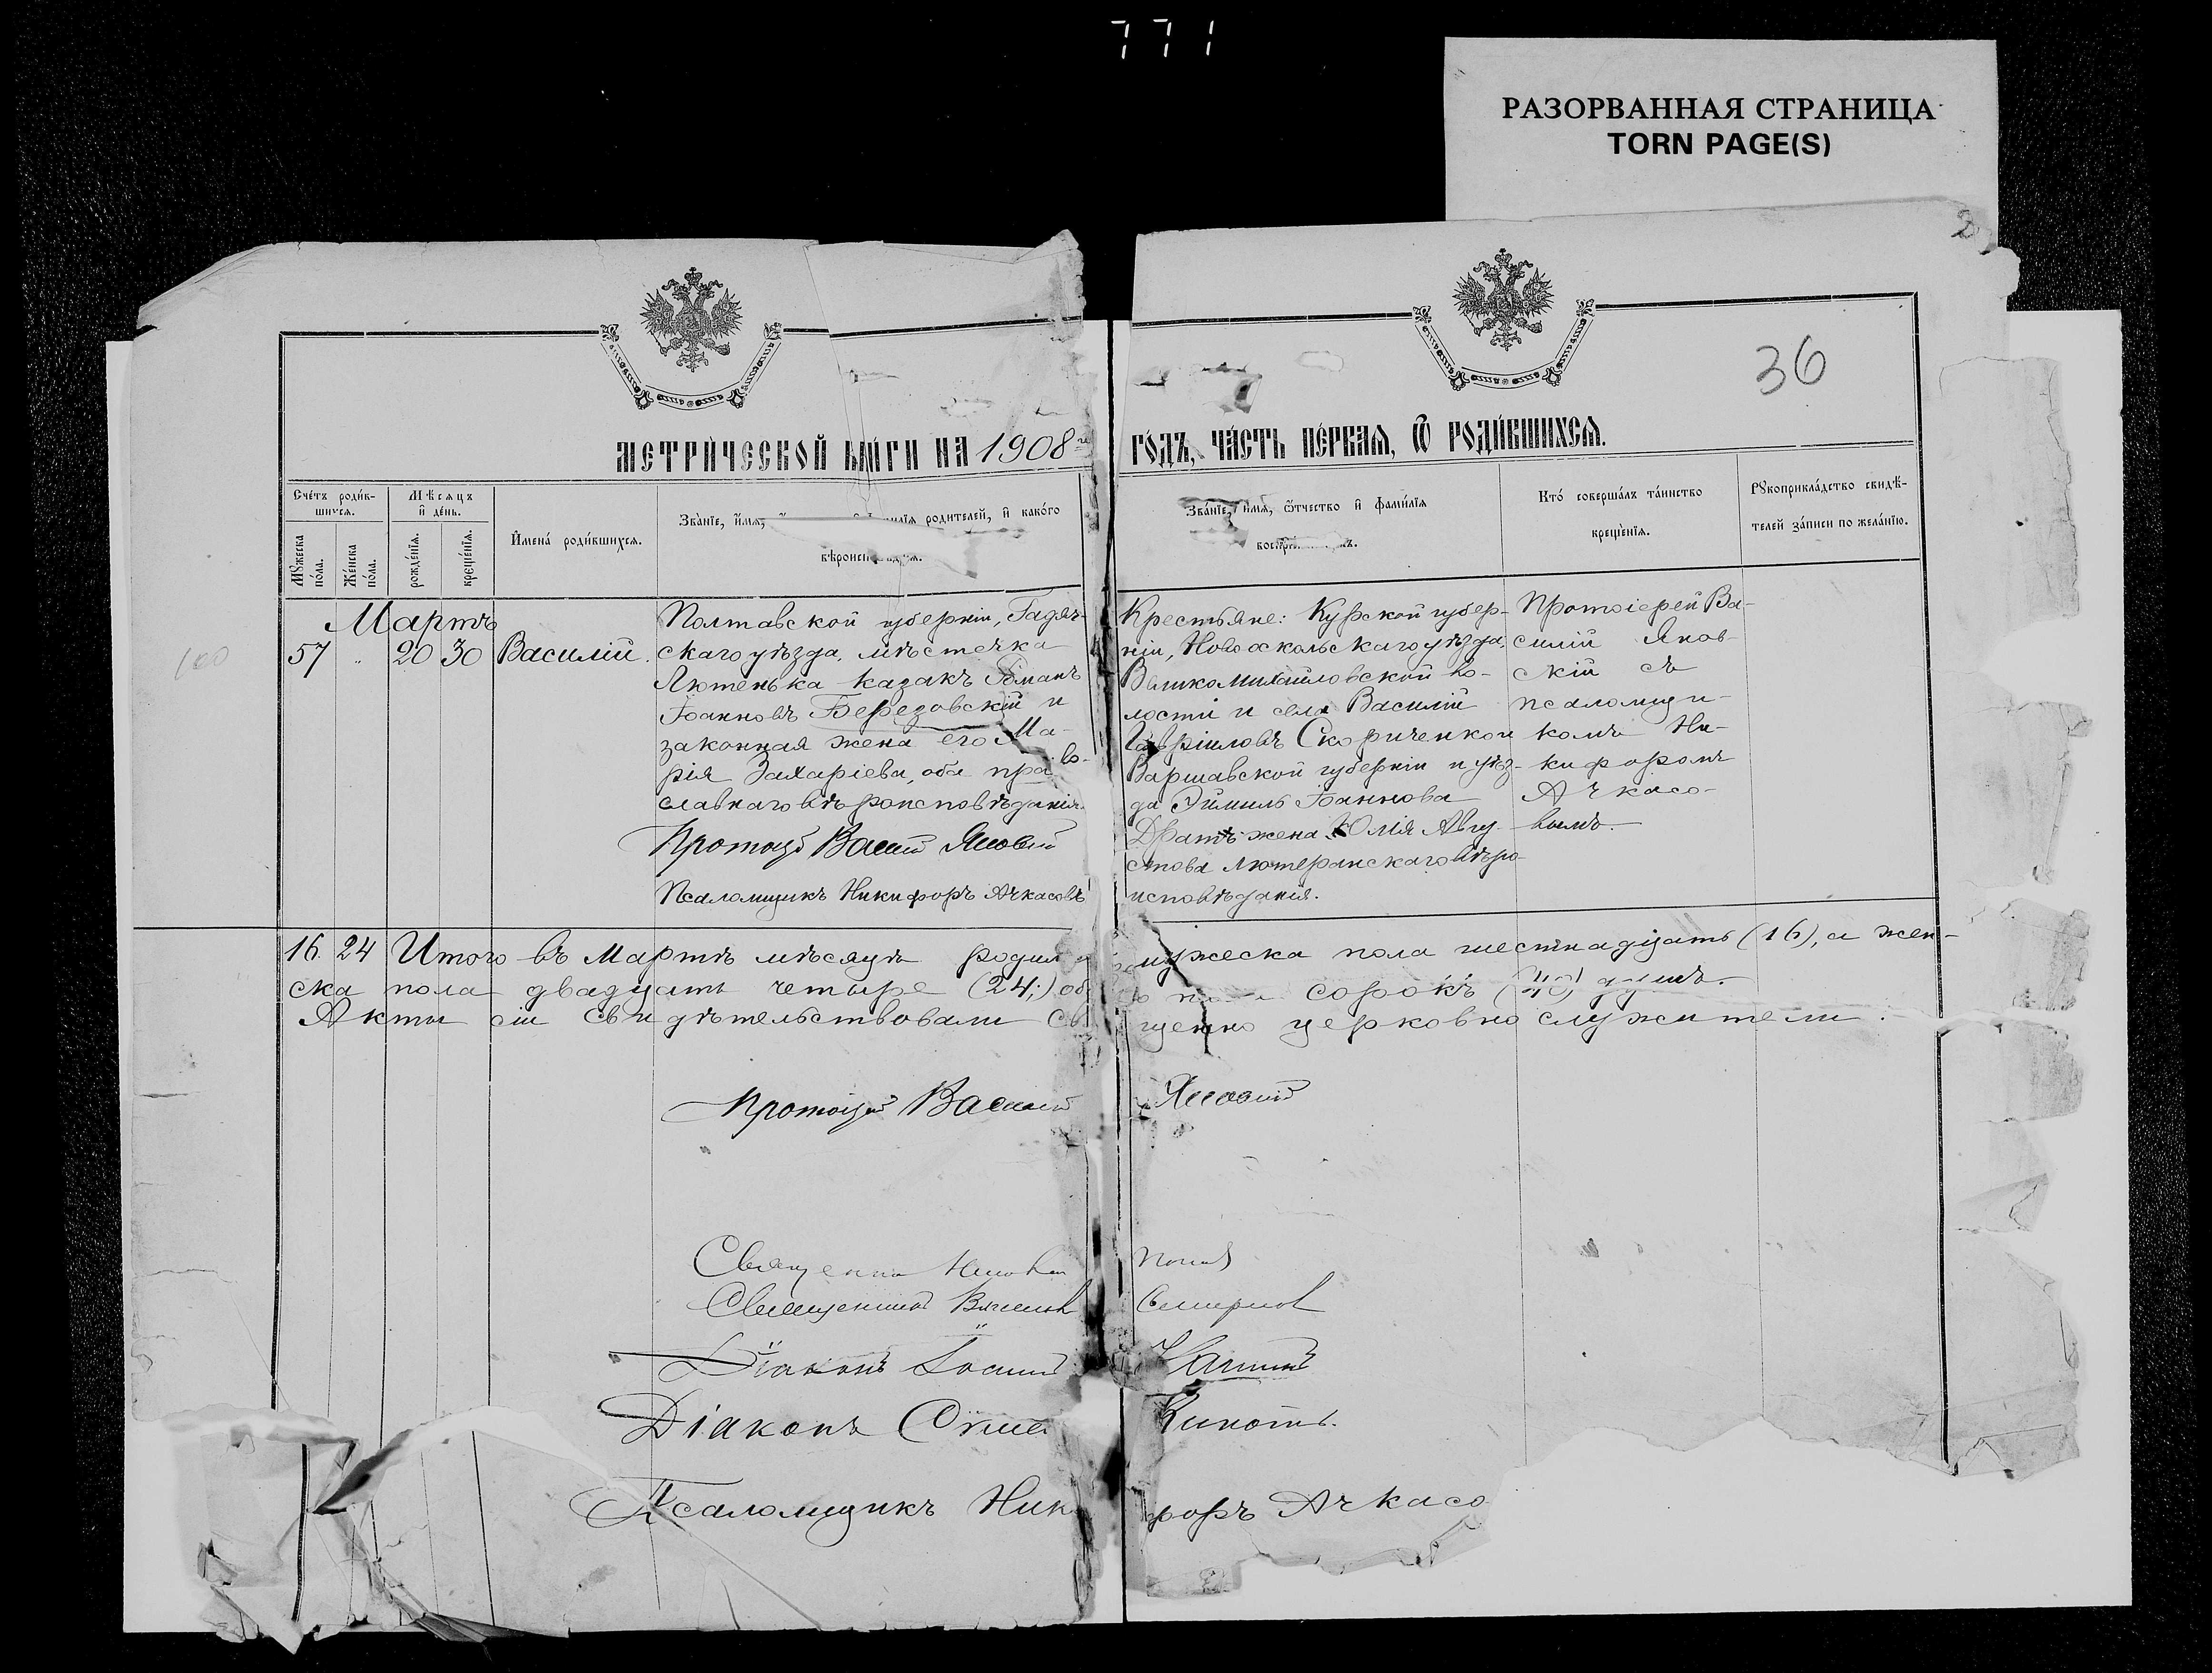 771
РАЗОРВАННАЯ СТРАНИЦА
TORN PAGE(S)
36
МЕТРИ́ЧЕСКОЙ КНИ́ГИ НА 1908 ГО́ДЪ, ЧА́СТЬ ПЕ́РВАЯ, Ѿ РОДИ́ВШИХСѦ.
Сче́тъ роди́в-
шихсѧ.
Мꙋжеска по́ла.
Же́нска по́ла.
Мѣ́сѧцъ и҆ де́нь.
рожде́нїѧ.
креще́нїѧ.
И҆мена́ роди́вшихсѧ.
Зва́нїе, и҆́мѧ, роди́телей, и҆ како́го
Зва́нїе, и҆́мѧ, ѻ҆́тчество и҆ фами́лїѧ
Кто̀ соверша́лъ та́инство
креще́нїѧ.
Рꙋкоприкла́дство свидѣ́-
телей за́писи по жела́нїю.
Мартъ
100
57 " 20 30 Василій.
Полтавской губерніи, Гадяч-
скаго уѣзда, мѣстечка
Лютенька казакъ Романъ
Іоанновъ Березовскій и
законная жена его Ма-
рія Захаріева, оба право-
славнаго вѣроисповѣданія.
Протоіер Василій Яновскій
Псаломщикъ Никифоръ Ачкасовъ
Крестьяне: Курской губер-
ніи, Новооскольскаго уѣзда,
Великомихайловской во-
лости и села Василій
Гавріиловъ Скориченкои
Варшавской губерніи и уѣз-
да Эймиль Іоаннова
Дратъ жена Юлія Авгу-
стова лютеранскаго вѣро-
исповѣданія.
Протоіерей Ва-
силій Янов-
скій съ
псаломщи-
комъ Ни-
кифоромъ
Ачкасо-
вымъ.
16. 24 Итого въ Мартѣ мѣсяцѣ родил мужеска пола шестнадцать (16), а жен-
ска пола двадцать четыре (24;) об сорокъ (40) душъ.
Акты сіи свидѣтельствовали св щенно церковно служители:
Протоіер Василій Яновскій
Священник
Священникъ
Діаконъ Іоаннъ
Діаконъ
Псаломщикъ Ник форъ Ачкасо